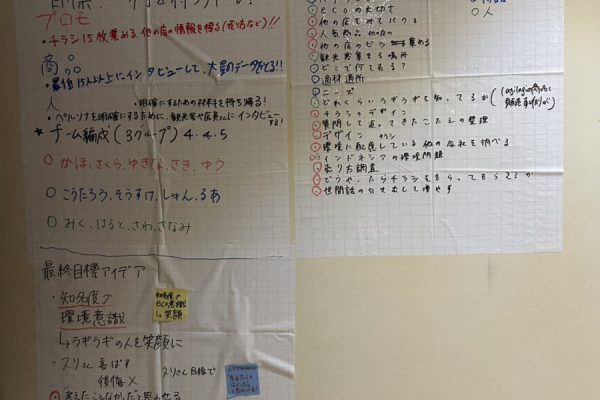 プロモ
・チラシ15枚集める、他の店の情報を得る(売り方など)!!
商品
・最低15人以上にインタビューして、大量のデータをとる!!
人
・明確にするための材料を持ち帰る!
・ペルソナを明確にするために、観光客や店員さんにインタビューする!
★チーム編成(3グループ) 4.4.5
○ かほ、さくら、ゆきな、さき、ゆう
○ こうたろう、そうすけ、しゅん、るあ
○ みく、はると、さわ、さなみ
最終目標アイデア
・知名度↗
環境意識
↳ラギラギの人を笑顔に
・スリさん 喜ばす
後悔×
スリさん目線で
知名度↗
ECO意識
↳笑顔
ecoの大切さ
他の店を見て
人気商品 他の店
他の店のビラ 集める
観光客集まる場所
どこで何を売る?
適材適所
ニーズ
どれくらいラギラギを知ってるか
チラシのデザイン
質問して返ってきたこたえの整理
デザイン チラシ
環境に配慮している他の会社を調べる
インドネシアの環境問題
売り方調査
どうやったらチラシをもらってもらえるか
世間話の引き出しを増やす
○人